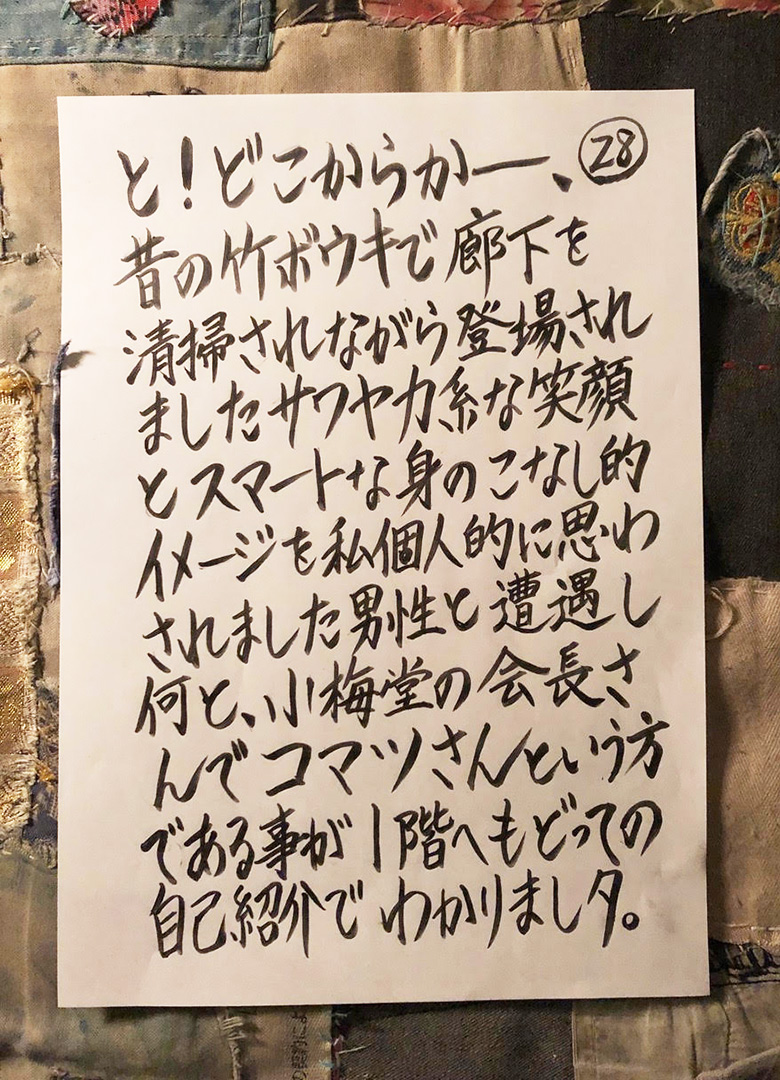 ㉘
と!どこからかー、
昔の竹ボウキで廊下を
清掃されながら登場され
ましたサワヤカ系な笑顔
とスマートな身のこなし的
イメージを私個人的に思わ
されました男性と遭遇し
何と、小梅堂の会長さ
んでコマツさんという方
である事が1階へもどっての
自己紹介でわかりましタ。